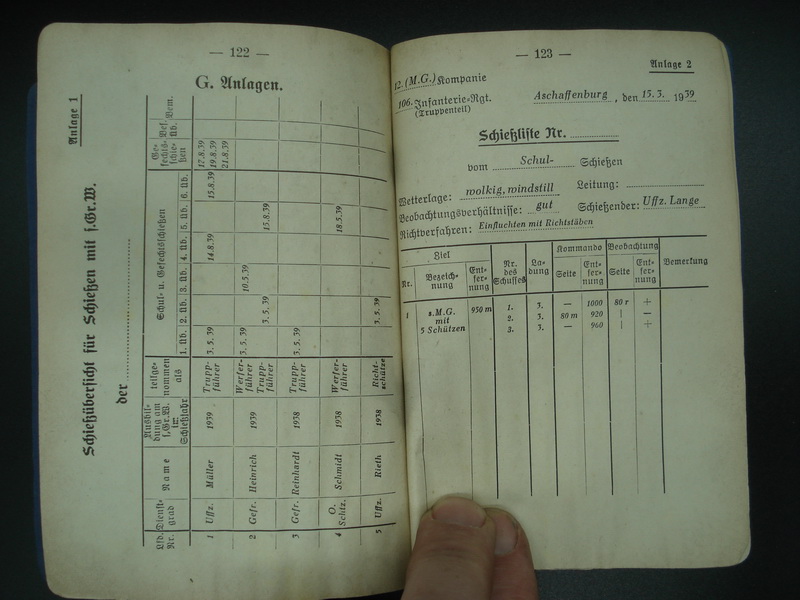 — 122 —
G. Anlagen.
Anlage 1
Schießübersicht für Schießen mit s.Gr.W.
der
Lfd. Nr.
Dienst-grad
Name
Ausbil-dung am s.Gr.W. im Schießjahr
teilge-nommen als
Schul- u. Gefechtsschießen
1. Üb. 2. Üb. 3. Üb. 4. Üb. 5. Üb. 6. Üb.
Ge-fechts-schie-ßen
Bes. Üb.
Bem.
1 Uffz. Müller 1939 Trupp-führer 3. 5. 39 14.8.39 15.8.39 17.8.39 19.8.39 21.8.39
2 Gefr. Heinrich 1939 Werfer-führer Trupp-führer 3. 5. 39 3. 5. 39 10.5.39 15.8.39
3 Gefr. Reinhardt 1938 Trupp-führer 3. 5. 39
4 O. Schtz. Schmidt 1938 Werfer-führer 18.5.39
5 Uffz. Rieth 1938 Richt-schütze 3. 5. 39
— 123 —
Anlage 2
12. (M.G.) Kompanie
106. Infanterie-Rgt.
(Truppenteil)
Aschaffenburg, den 15.3. 1939
Schießliste Nr.
vom Schul- Schießen
Wetterlage: wolkig, windstill Leitung:
Beobachtungsverhältnisse: gut Schießender: Uffz. Lange
Richtverfahren: Einfluchten mit Richtstäben
Ziel
Nr.
Bezeich-nung
Ent-fer-nung
Nr. des Schusses
La-dung
Kommando
Seite
Ent-fer-nung
Beobachtung
Seite
Ent-fer-nung
Bemerkung
1 s.M.G. 950 m 1. 3. — 1000 80 r +
mit 2. 3. 80 m 920 | —
5 Schützen 3. 3. — 960 | +